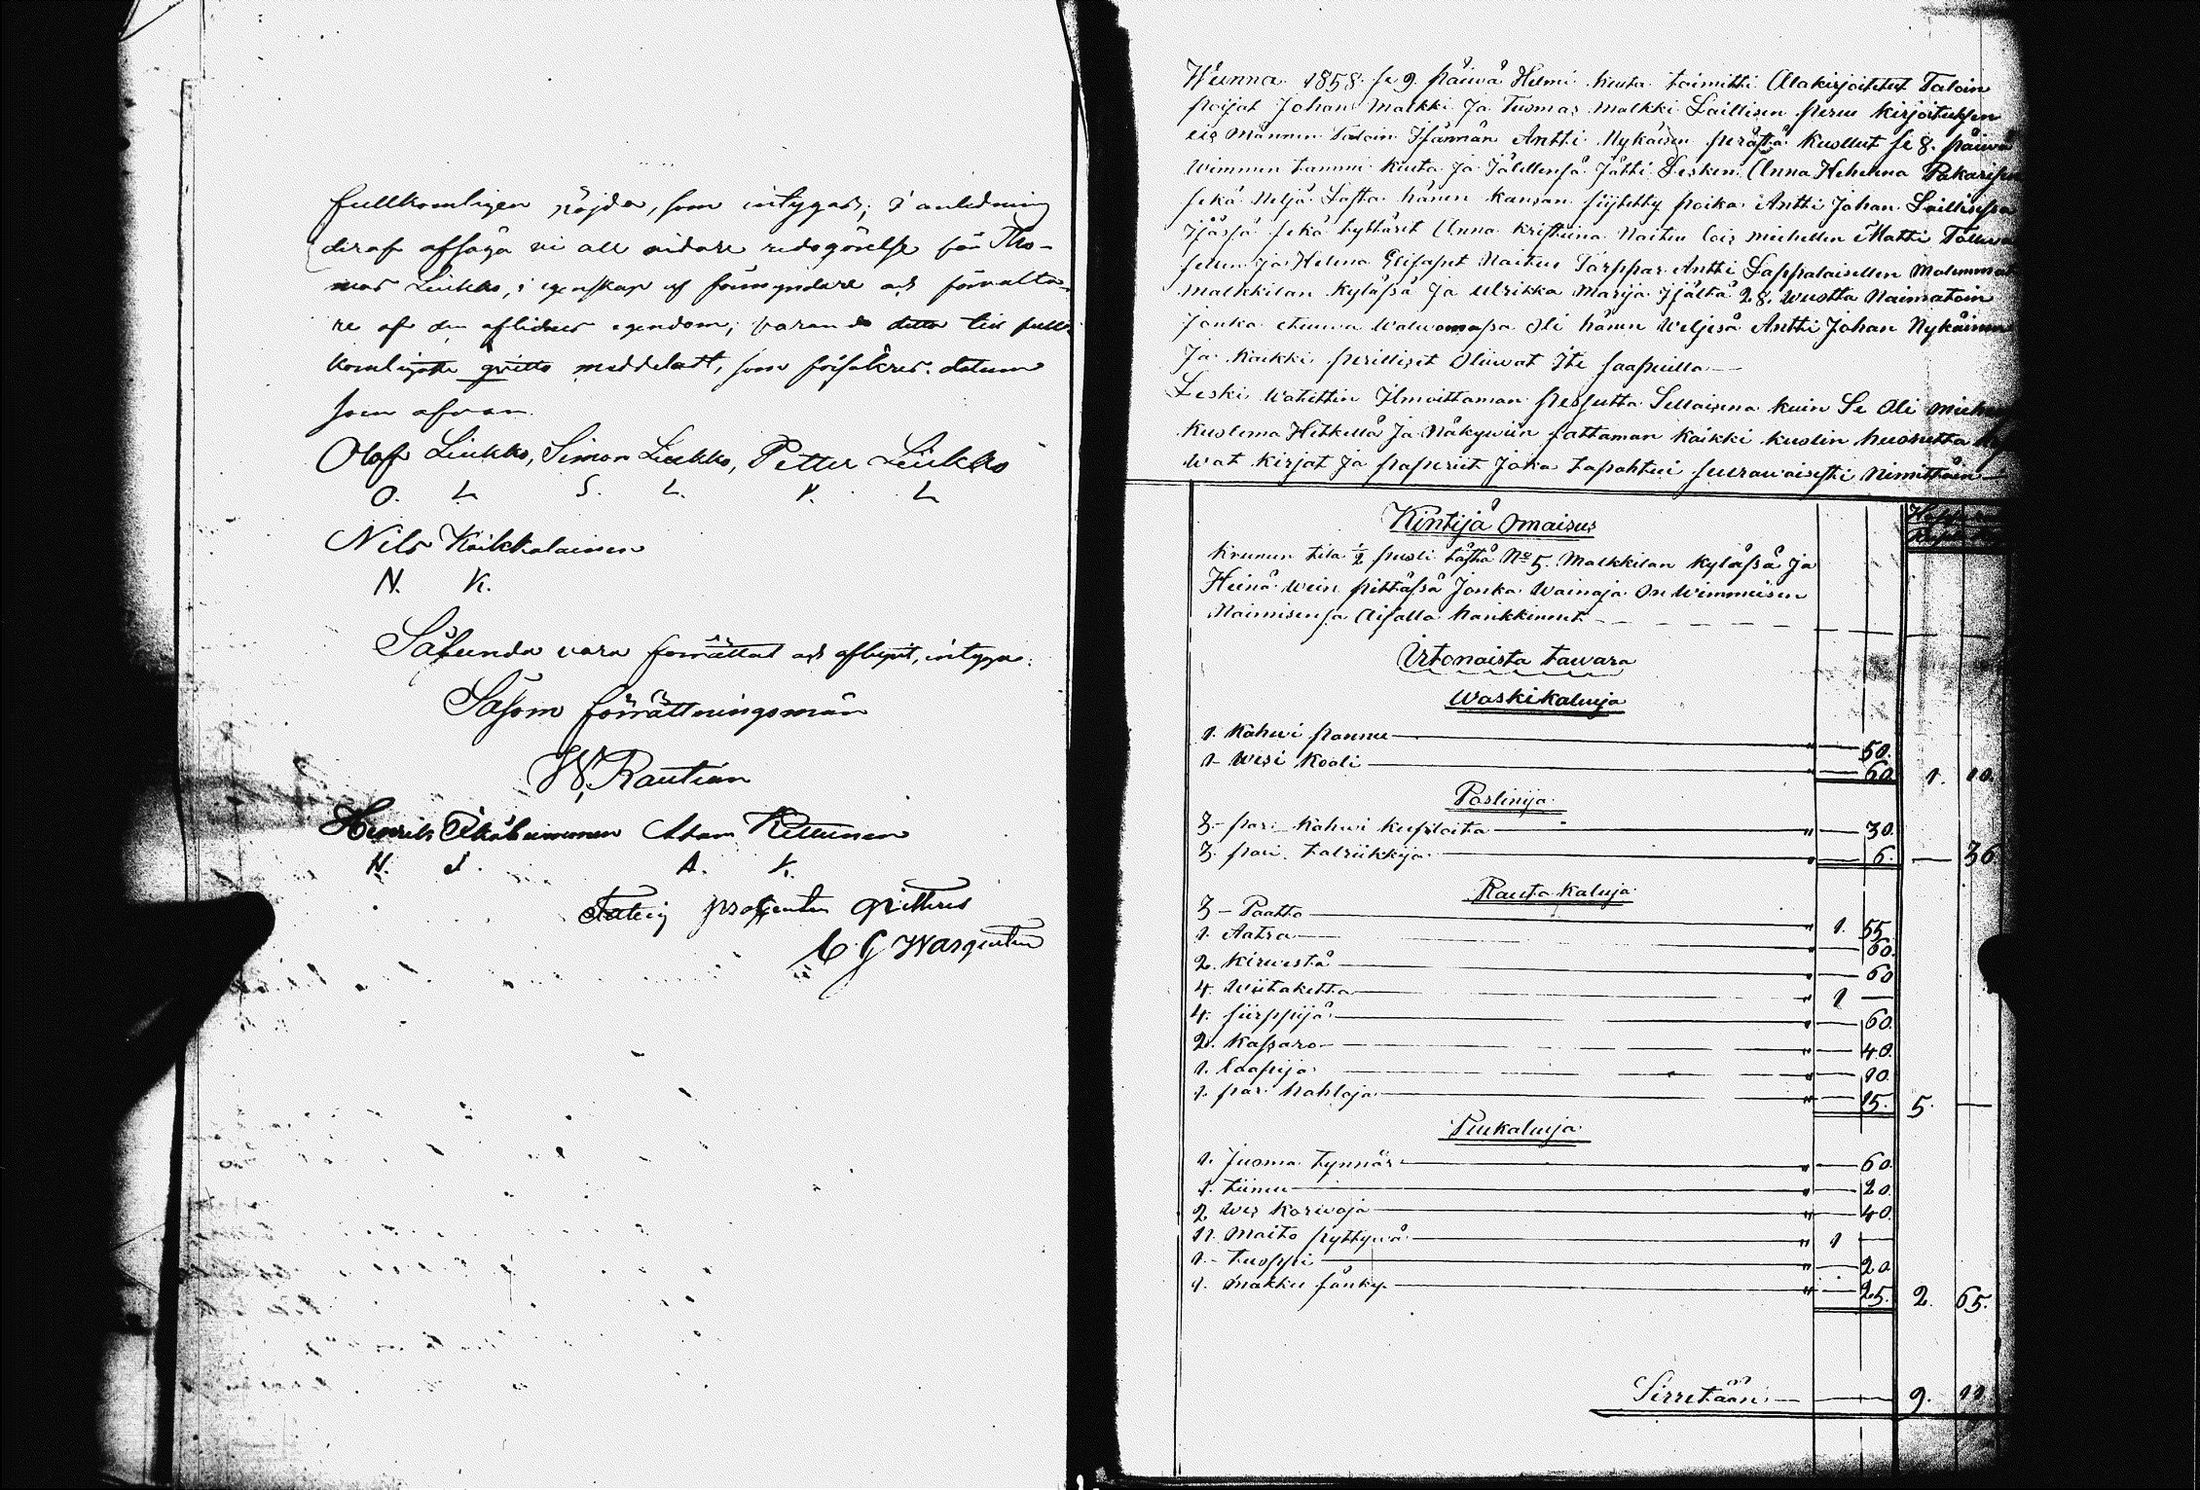 fullkomligen nöjda, som intygas; i anledning
deraf afsäga vi all vidare redogörelse för Tho-
mas Liukko, i egenskap af förmyndare och förvalta-
re af den aflidnes egendom; varande detta till full-
komligste qvitto meddeladt, som försäkras. datum
som ofvan.
Olof Liukko, Simon Liukko, Petter Liukko
O. L. S. L. P. L
Nils Kaikkolainen
N. K.
Sålunda vara förrättat och aflupit, intyga:
Såsom förrättningsmän
W. Rautiain
Henrik Adam Kettunen
H. A. K.
Fattig procenten qvitteras
C G Wargentin
Wunna 1858. se 9. päivä Helmi kuuta toimitti Allakirjoitetut Taloin
poijat Johan Malkki Ja Tuomas Malkki Laillisen peru kirjoituksen
eis Männen Taloin Isännän Antti Nykäisen perästä kuollut se 8. päivä
Wimmen tammi kuuta Ja Jälellensä Jätti Lesken Anna Helena Pakarisen
sekä Neljä Lasta hänen kansan siitetty poika Antti Johan Laillisessa
Ijässä sekä tyttäret Anna Kristiina Naitu lois miehellen Matti
Ja Helena Elisapet Naitu Torppar Antti Lappalaisellen Molemmat
Malkkilan kylässä Ja Ulrikka Marija Ijältä 28. wuotta Naimatoin
Jonka etuuva walwomassa Oli hänen Weljesä Antti Johan Nykäinen
Ja kaikki perilliset Oliwat Ite saapuilla —
Leski watittin Ilmoittaman pesyutta Sellaisena kuin Se Oli miehen
kuolema Hetkellä Ja Näkywiin sattaman kaikki kuolin huonetta
wat kirjat Ja paperiit Joka tapahtui seurawaisesti Nimittäin —
Kintijä Omaisus
krunun tila ½ puoli tästä No 5. Malkkilan kylässä Ja
Heinä wein pittässä Jonka Wainaja On Wimmeisen
Naimisensa Aijalla hankkinut
Irtonaista tawara
Waskikaluja
1. kahwi pannu — " — 50.
1 wesi kooli — " — 60 1. 10.
Poslinija
3 pari kahwi kupploita — " — 30.
3 pari talriikkija — " — 6. — 36
Rauta kaluja
3 – Paatta — " 1. 55
1. Aatra — " — 60.
2. kirwestä — " — 60
4. wiitaketta — " 1 —
4. siirppijä — " — 60.
2. kassaro — " — 40.
1. Laapija — " — 10.
1. par. hahloja — " — 15. 5. —
Puukaluja
1. Juoma tynnär — " — 60.
1. tiinu — " — 20.
2 wes korwoja — " — 40.
11. Maito pyttywä — " 1 —
1 – tuoppi — " — 20
1. makku sänky — " — 25. 2. 65.
Sirretään — 9. 11.